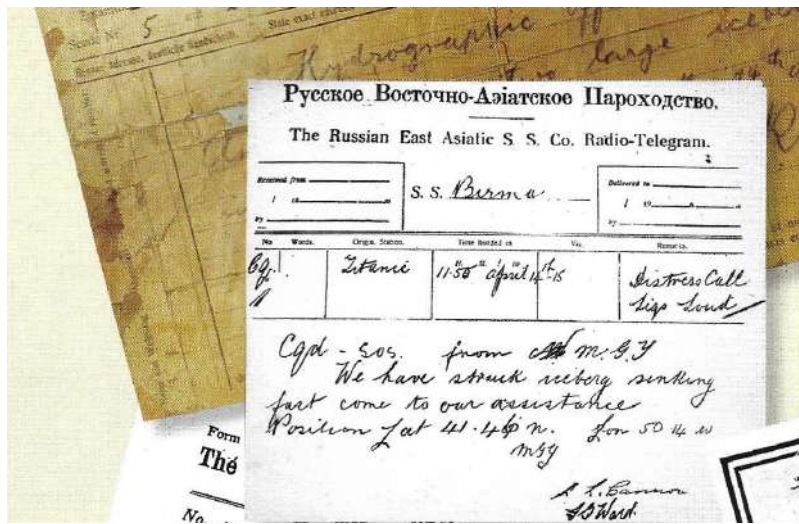 5
State exact
Hydrographic
two large iceb
Русское Восточно-Азіатское Пароходство.
The Russian East Asiatic S. S. Co. Radio-Telegram.
Received from
Delivered to
S. S. Birma
1 19
by
by
No Words. Origin. Station. Time handed in Via. Remarks.
Cqd Titanic 11-50 April 14th-15 Distress Call
Sigs Loud
Cqd - SOS. from M.G.Y
We have struck iceberg sinking
fast come to our assistance
Position Lat 41.46 n. Lon 50.14 w
MGY
Form
The
No.